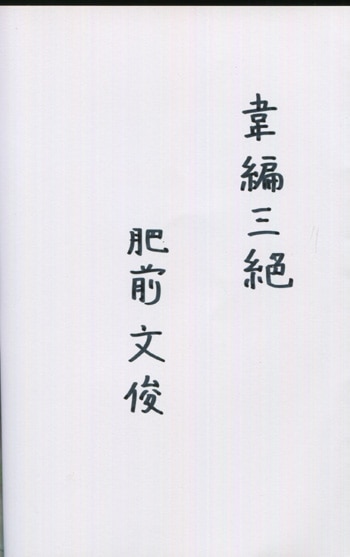 韋編三絕
肥前文俊